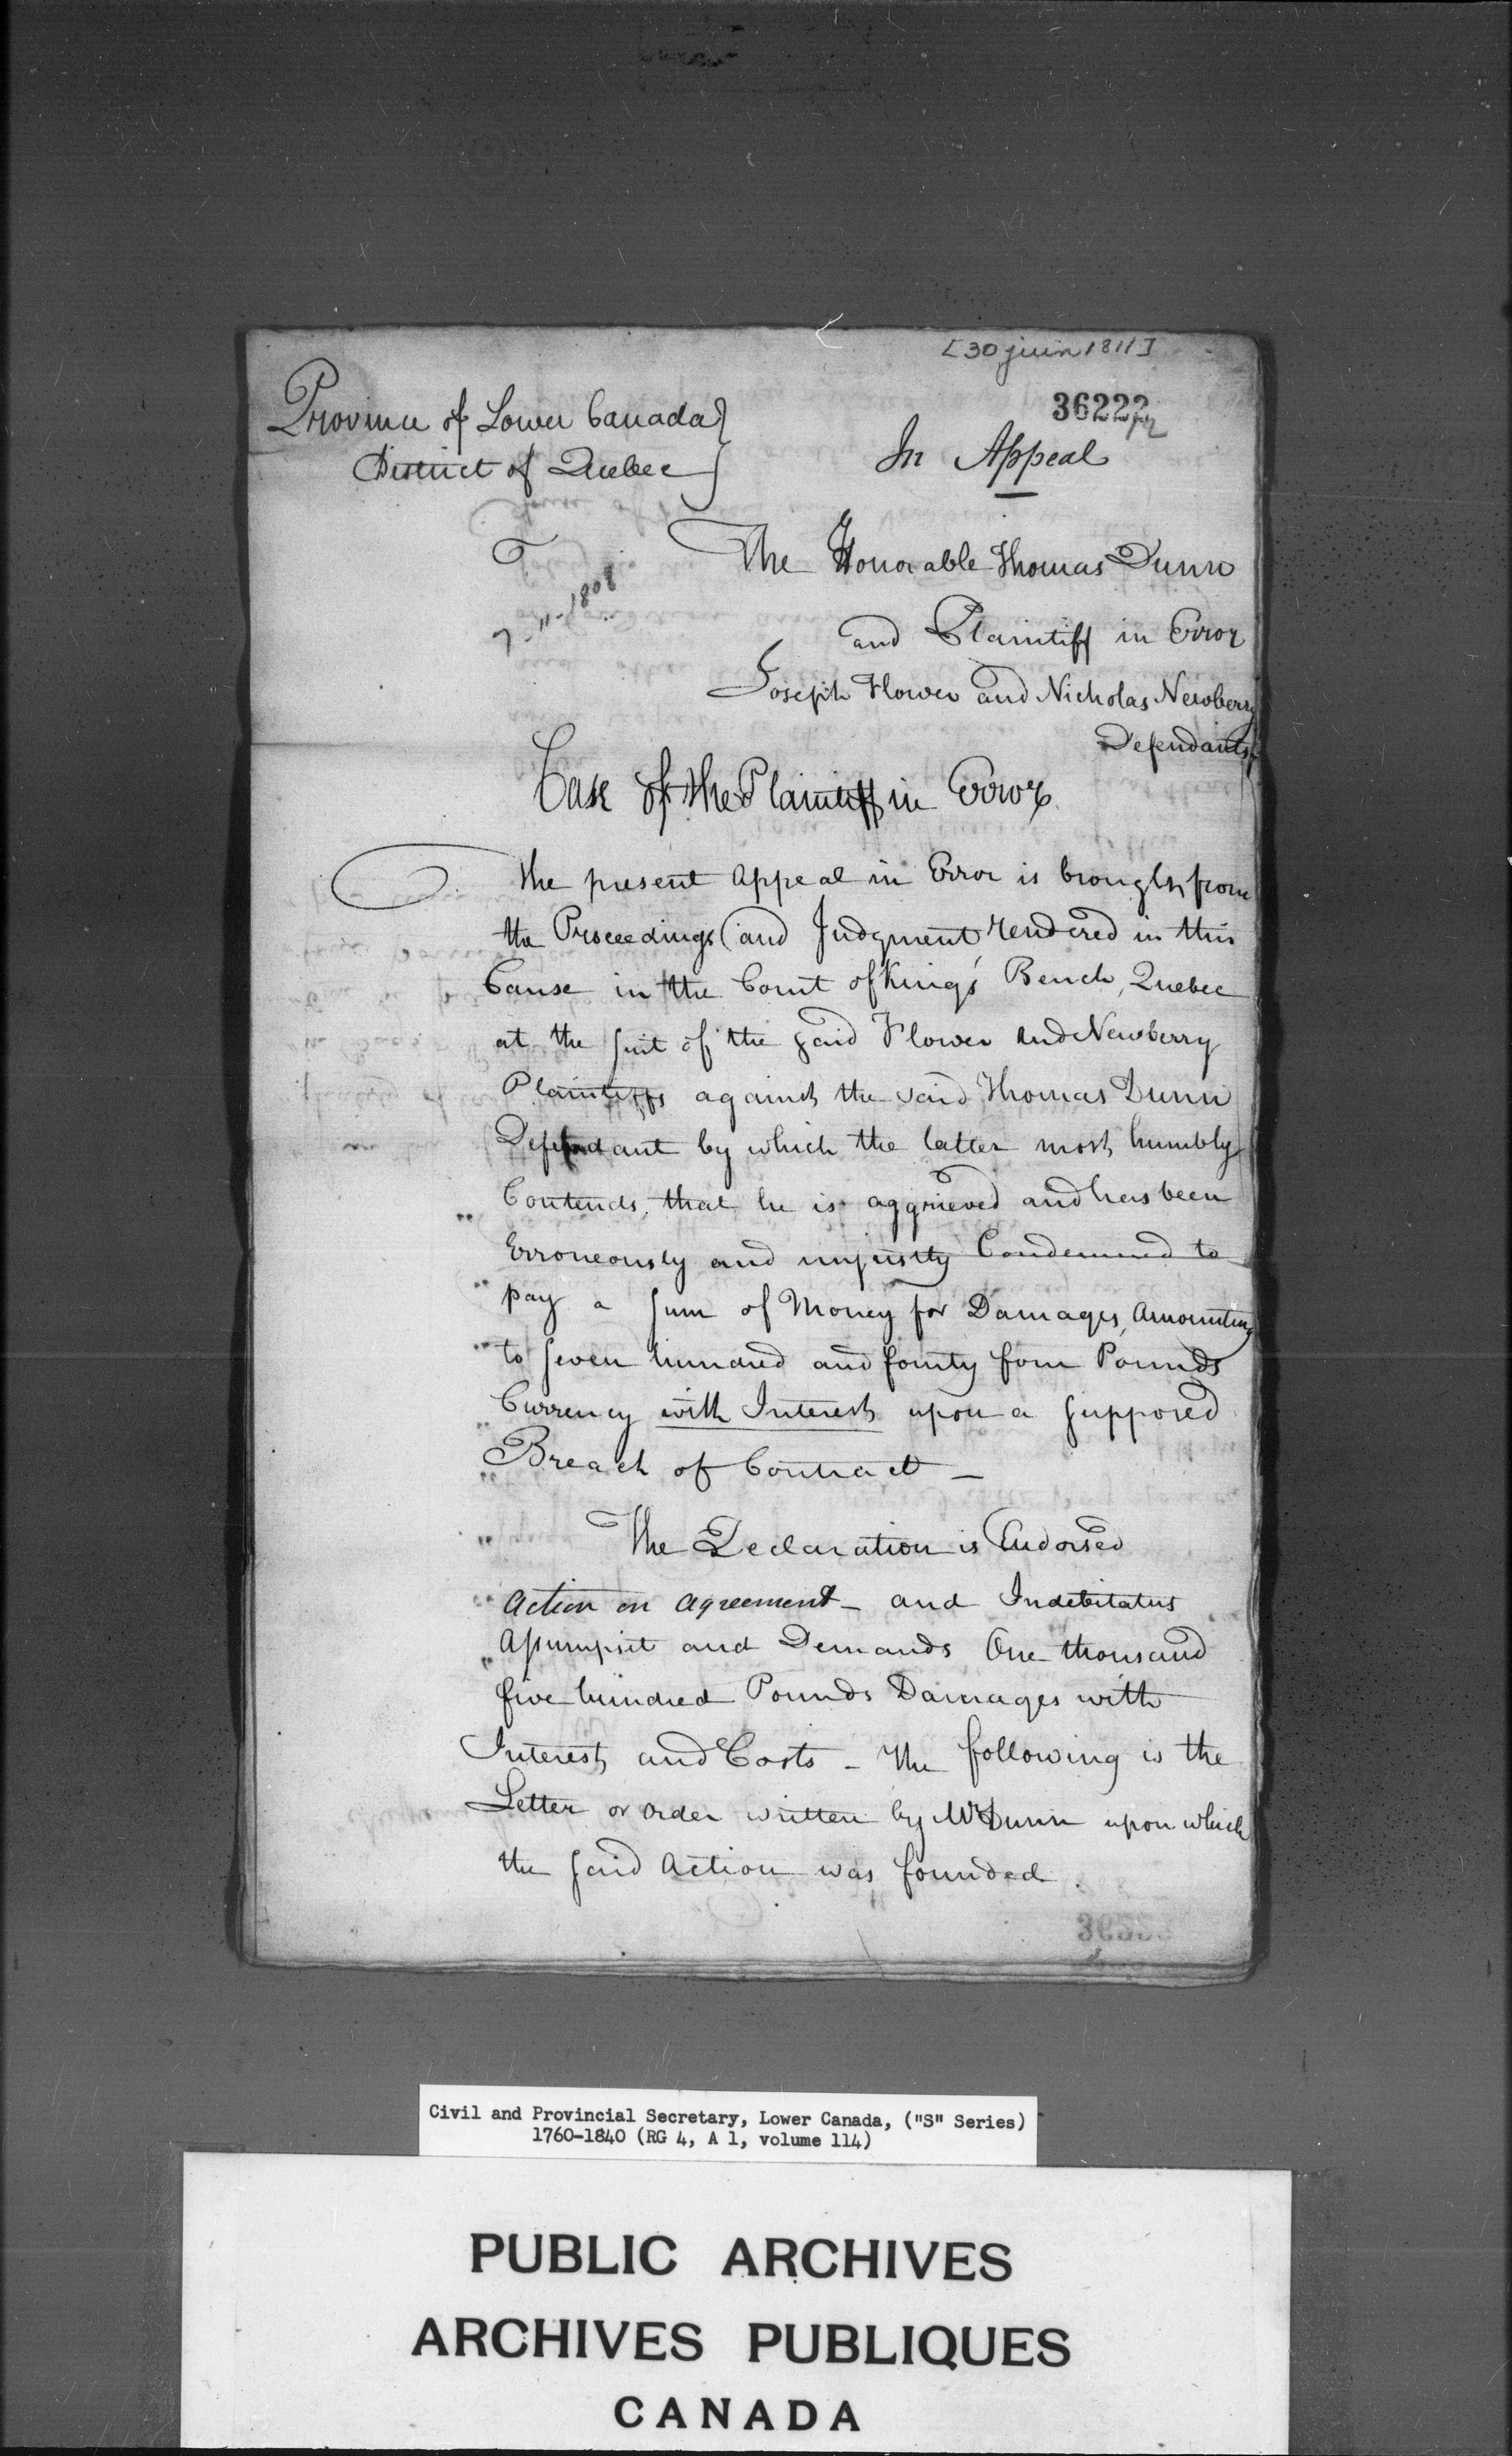 [30 juin 1811]
36222
Province of Lower Canada }
District of Quebec }
In Appeal
7-11-1808
The Honorable Thomas Dunn
and Plaintiff in Error
Joseph Flower and Nicholas Newberry
Defendants
Case of the Plaintiff in Error
The present Appeal in Error is brought from
the Proceedings and Judgment rendered in this
Cause in the Court of King's Bench, Quebec
at the suit of the said Flower and Newberry
Plaintiffs against the said Thomas Dunn
Defendant by which the latter most humbly
Contends, that he is aggrieved and has been
" Erroneously and unjustly Condemned to
" pay a sum of Money for Damages, Amounting
" to seven hundred and fourty four Pounds
" Currency with Interest upon a supposed
" Breach of Contract —
" The Declaration is Endorsed
" Action on Agreement — and Indebitatus
" Assumpsit and Demands One thousand
five hundred Pounds Damages with
Interest and Costs — The following is the
Letter or order written by Mr Dunn upon which
the said Action was founded.
Civil and Provincial Secretary, Lower Canada, ("S" Series)
1760-1840 (RG 4, A 1, volume 114)
PUBLIC ARCHIVES
ARCHIVES PUBLIQUES
CANADA